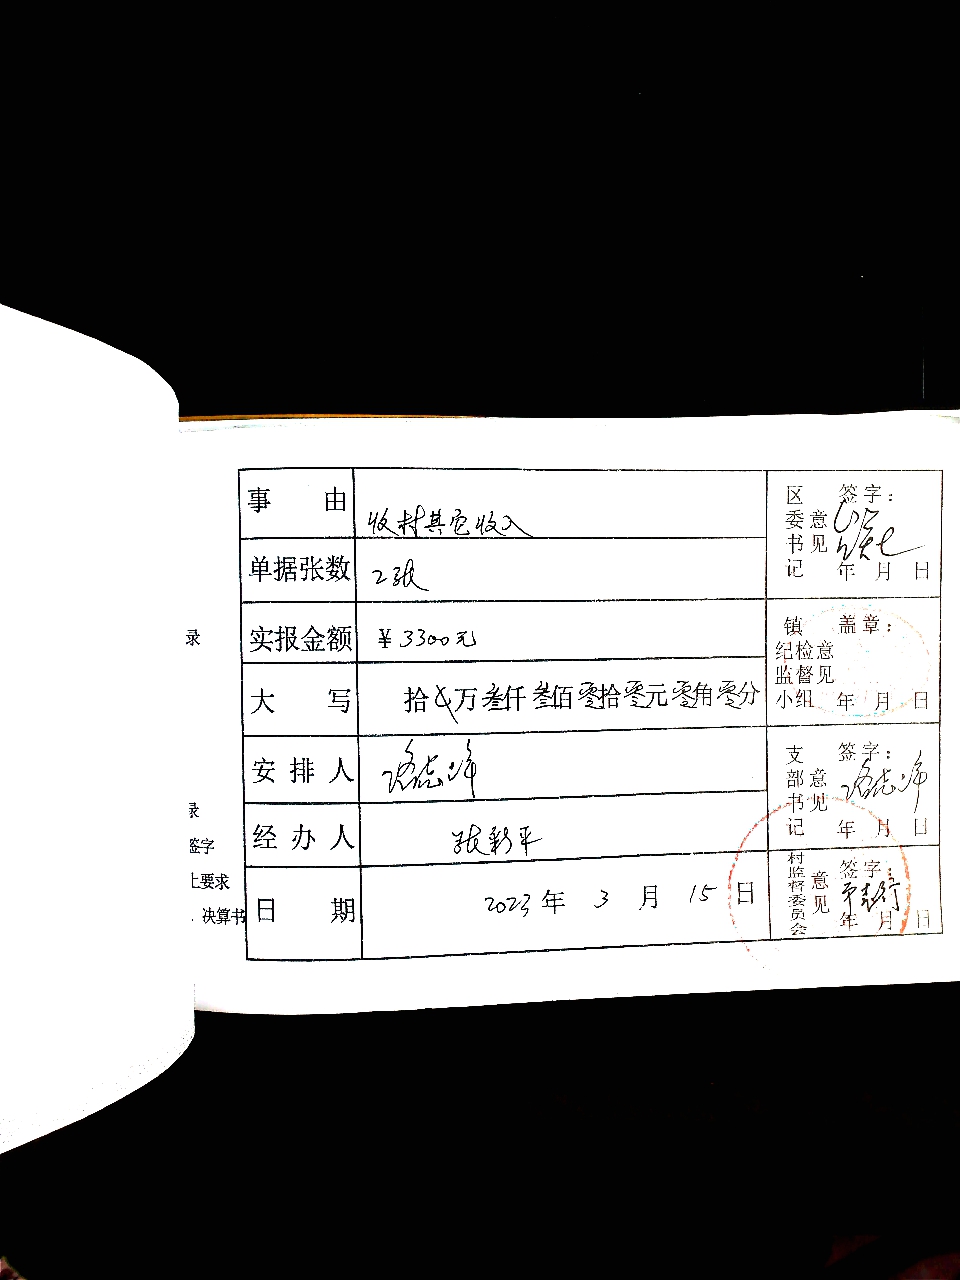 事 由 收村其它收入
单据张数 2张
实报金额 ¥3300元
大 写 拾 万叁仟叁佰零拾零元零角零分
安排人
经办人 张彩平
日 期 2023年3月15日
区委书记意见 签字：
年 月 日
镇纪检监督小组意见 盖章：
年 月 日
支部书记意见 签字：
年 月 日
村监督委员会意见 签字：
年 月 日
录
录
签字
上要求
决算书